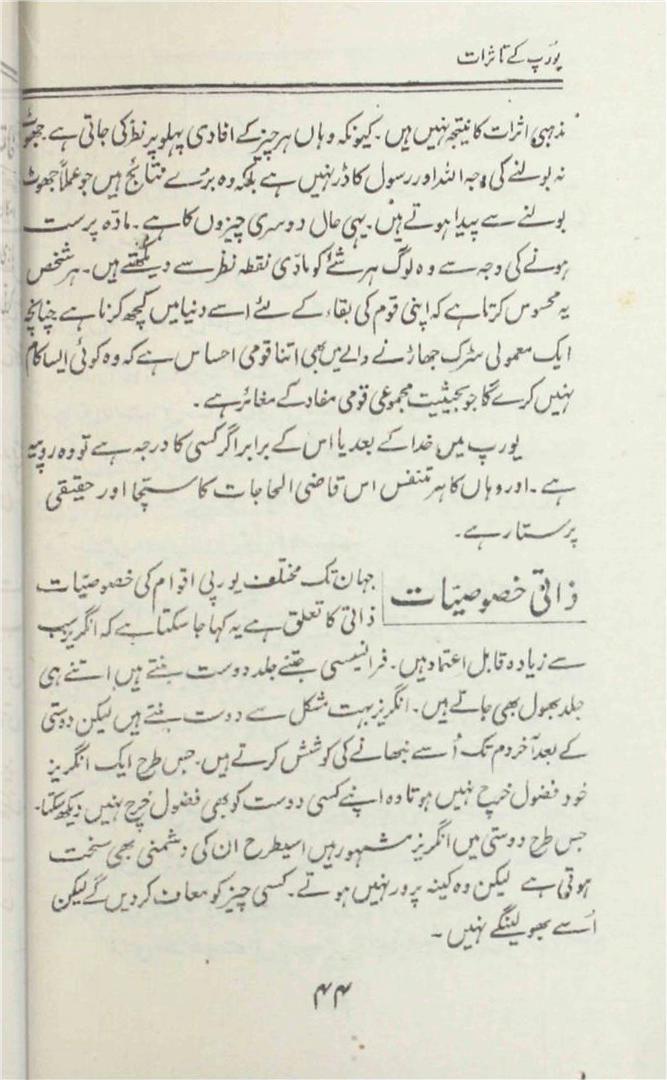 یورپ کے تاثرات
مذہبی اثرات کا نتیجہ نہیں ہیں۔ کیونکہ وہاں ہر چیز کے افادی پہلو پر نظر کی جاتی ہے۔ جھوٹ
نہ بولنے کی وجہ اللہ اور رسول کا ڈر نہیں ہے بلکہ وہ برے نتائج ہیں جو عملاً جھوٹ
بولنے سے پیدا ہوتے ہیں۔ یہی حال دوسری چیزوں کا ہے۔ مادّہ پرست
ہونے کی وجہ سے وہ لوگ ہر شئے کو مادّی نقطہ نظر سے دیکھتے ہیں۔ ہر شخص
یہ محسوس کرتا ہے کہ اپنی قوم کی بقاء کے لئے اسے دنیا میں کچھ کرنا ہے چنانچہ
ایک معمولی سڑک جھاڑنے والے میں بھی اتنا قومی احساس ہے کہ وہ کوئی ایسا کام
نہیں کرے گا جو بحیثیت مجموعی قومی مفاد کے مغائر ہے۔
یورپ میں خدا کے بعد یا اس کے برابر اگر کسی کا درجہ ہے تو وہ روپیہ
ہے۔ اور وہاں کا ہر متنفس اس قاضی الحاجات کا سچّا اور حقیقی
پرستار ہے۔
ذاتی خصوصیّات
جہان تک مختلف یورپی اقوام کی خصوصیّات
ذاتی کا تعلق ہے یہ کہا جا سکتا ہے کہ انگریز سب
سے زیادہ قابل اعتماد ہیں۔ فرانسیسی جتنے جلد دوست بنتے ہیں اتنے ہی
جلد بھول بھی جاتے ہیں۔ انگریز بہت مشکل سے دوست بنتے ہیں لیکن دوستی
کے بعد آخر دم تک اُسے نبھانے کی کوشش کرتے ہیں۔ جس طرح ایک انگریز
خود فضول خرچ نہیں ہوتا وہ اپنے کسی دوست کو بھی فضول خرچ نہیں دیکھ سکتا۔
جس طرح دوستی میں انگریز مشہور ہیں اسیطرح ان کی دشمنی بھی سخت
ہوتی ہے لیکن وہ کینہ پرور نہیں ہوتے۔ کسی چیز کو معاف کردیں گے لیکن
اُسے بھولینگے نہیں۔
۴۴